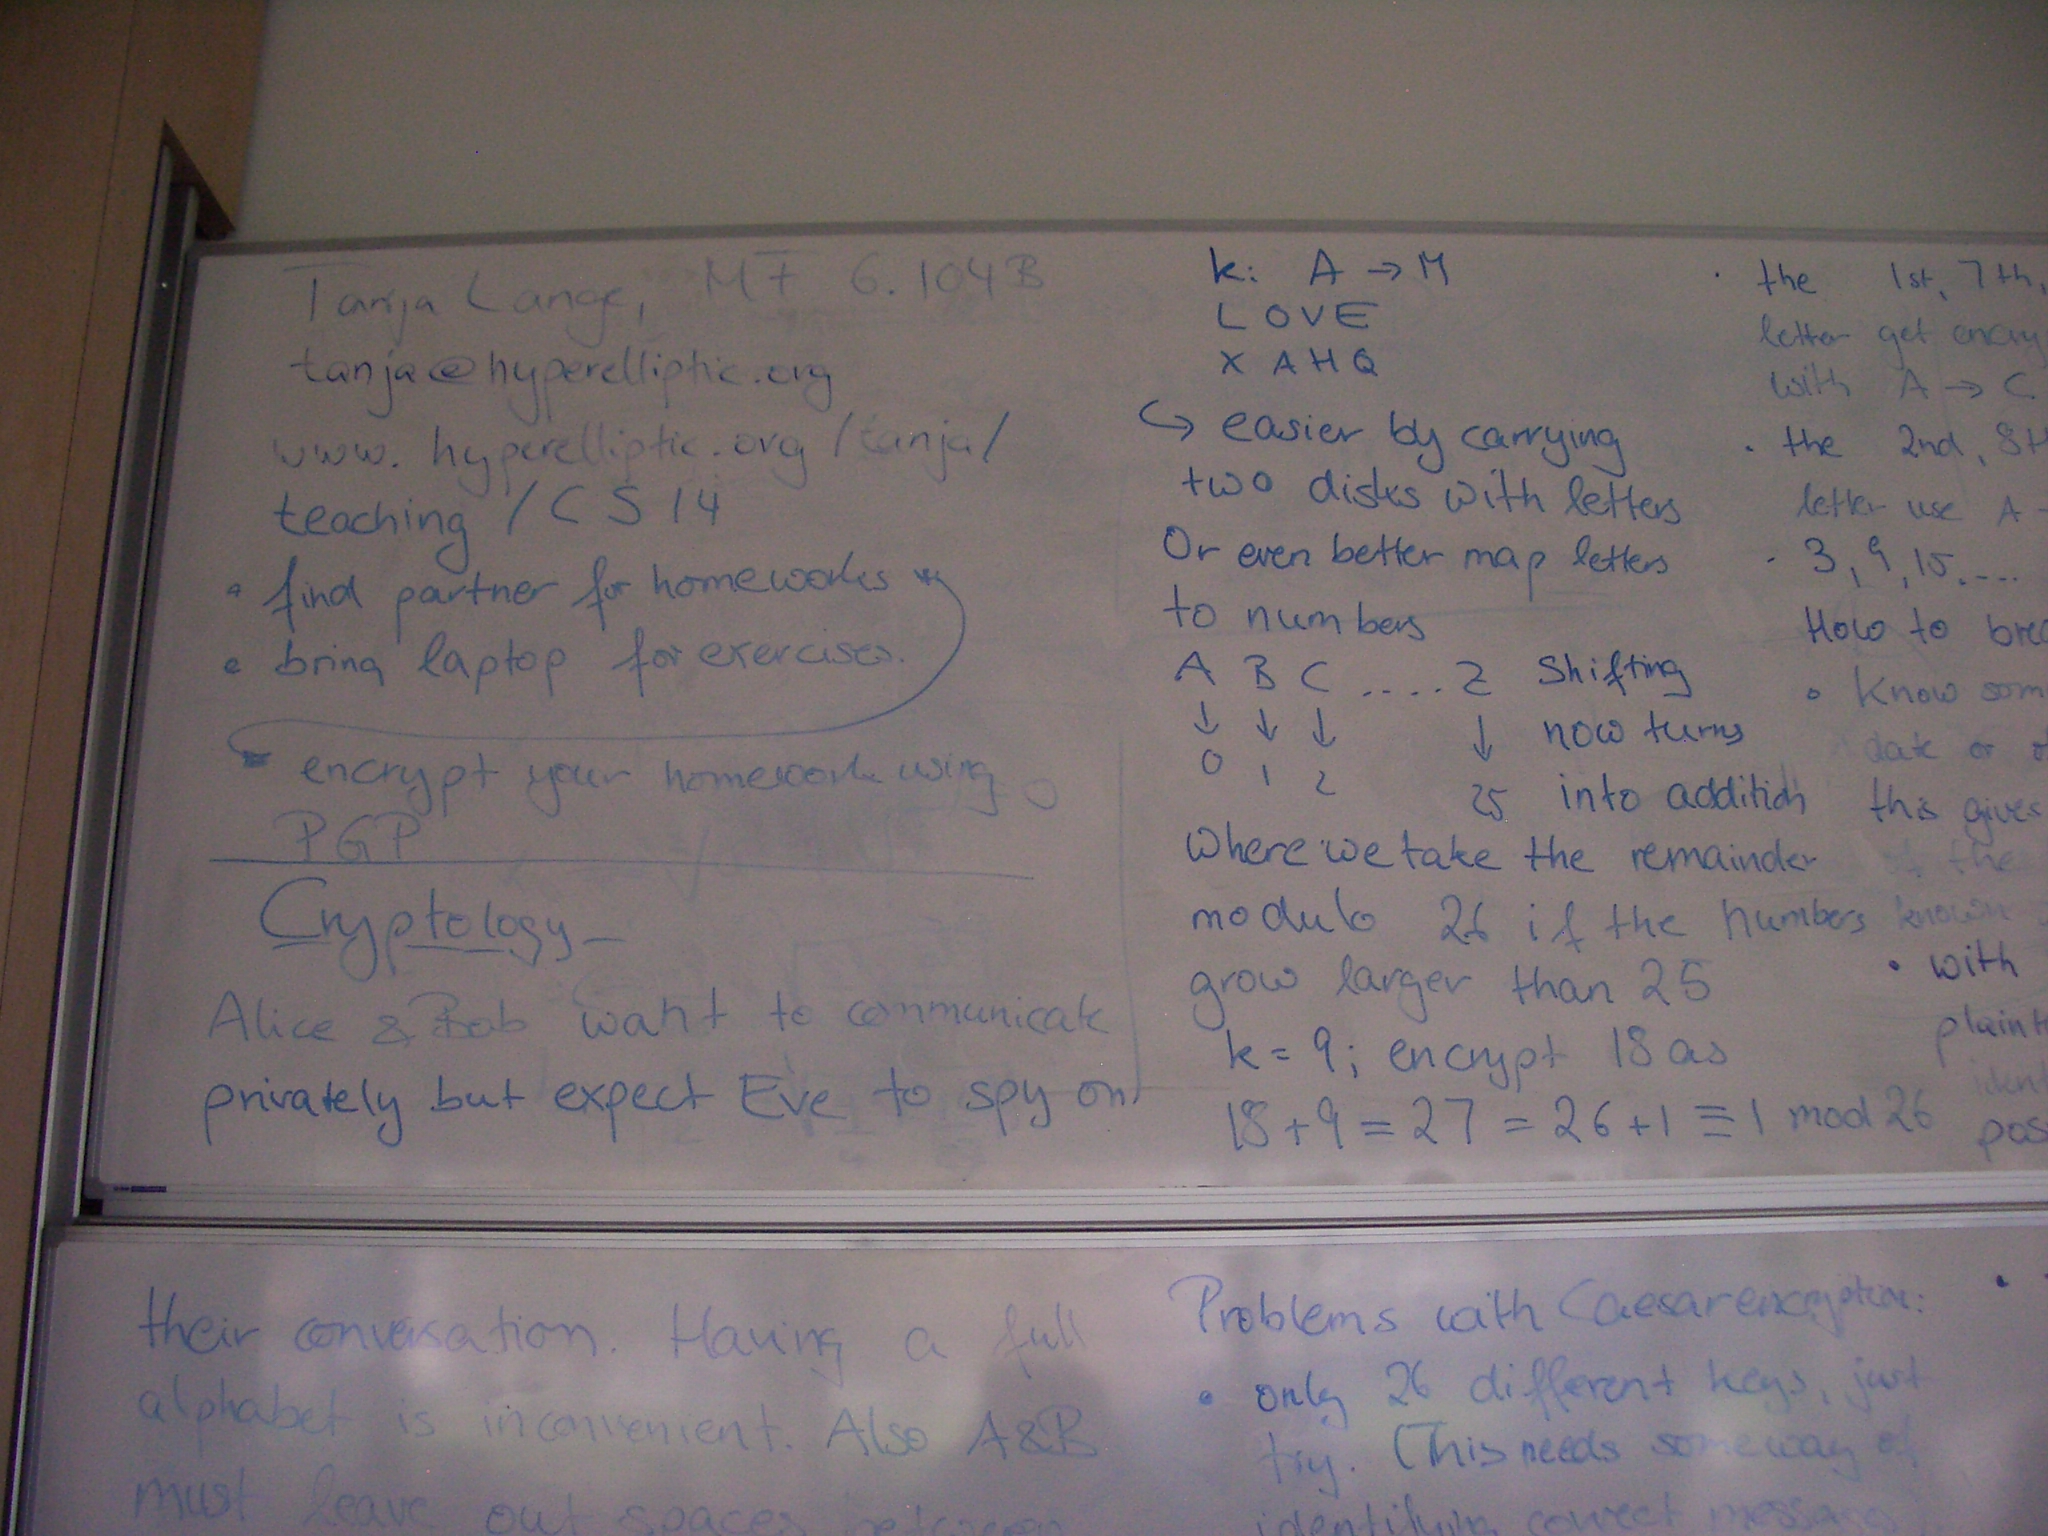 Tanja Lange, MF 6.104B
tanja@hyperelliptic.org
www.hyperelliptic.org/tanja/
teaching/CS14
• find partner for homeworks
• bring laptop for exercises.
encrypt your homework using
PGP
Cryptology
Alice & Bob want to communicate
privately but expect Eve to spy on
their conversation. Having a full
alphabet is inconvenient. Also A&B
must leave out spaces between
k: A → M
LOVE
XAHQ
↪ easier by carrying
two disks with letters
Or even better map letters
to numbers
A B C ..... Z Shifting
↓ ↓ ↓ ↓ now turns
0 1 2 25 into addition
where we take the remainder
modulo 26 if the numbers
grow larger than 25
k = 9; encrypt 18 as
18+9 = 27 = 26+1 ≡ 1 mod 26
Problems with Caesar encryption:
• only 26 different keys, just
try. (This needs some way of
identifying correct message)
• the 1st, 7th,
letter get encry
with A → C
• the 2nd, 8th
letter use A
• 3, 9, 15, ....
How to brea
• Know som
date or
this gives
the
known
• with
plaint
ident
pos